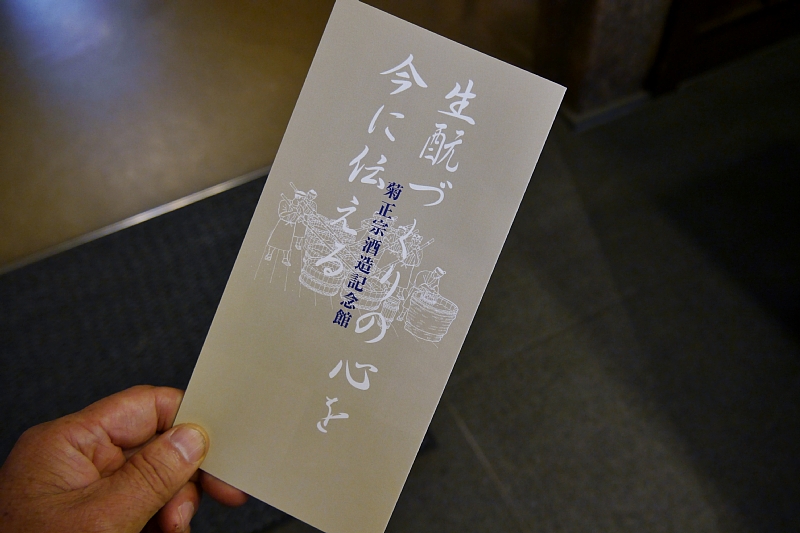 生酛づくりの心を
今に伝える
菊正宗酒造記念館